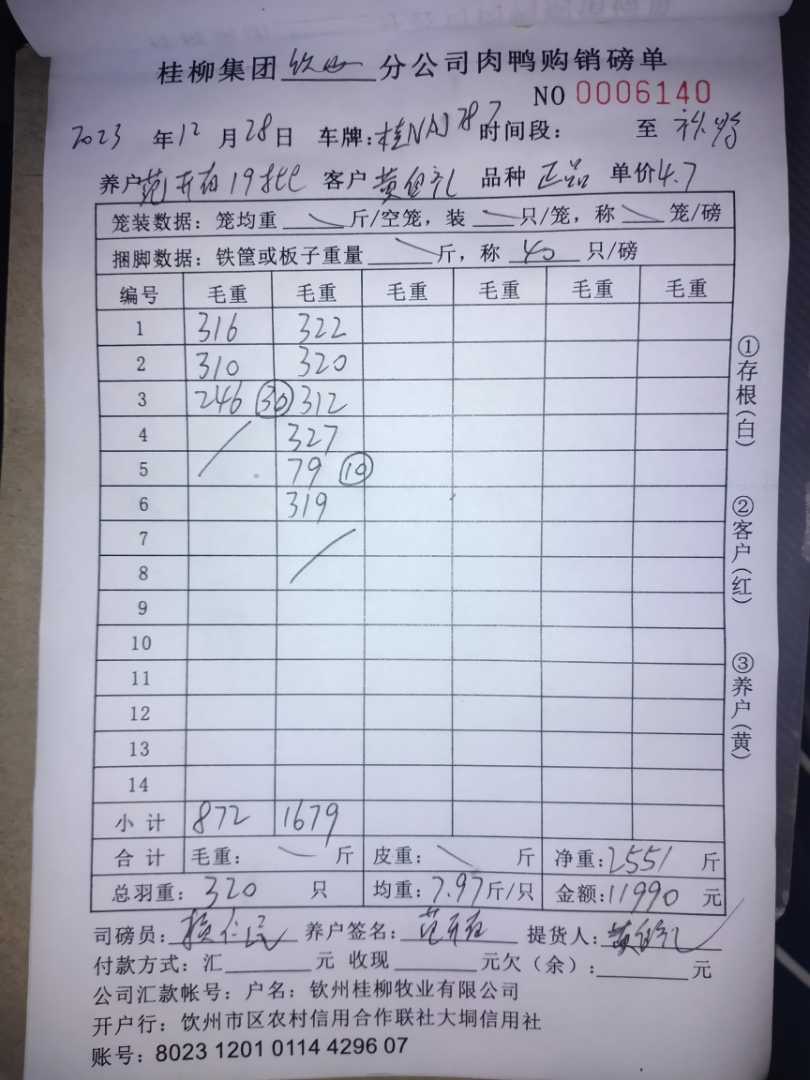 桂柳集团钦州分公司肉鸭购销磅单
NO 0006140
2023年12月28日 车牌:桂NAJ787 时间段: 至
养户范开石19批 客户黄 礼 品种正品 单价4.7
笼装数据：笼均重 斤/空笼，装 只/笼，称 笼/磅
捆脚数据：铁筐或板子重量 斤，称 40 只/磅
编号 毛重 毛重 毛重 毛重 毛重 毛重
1 316 322
2 310 320
3 246 30 312
4 327
5 79 10
6 319
7
8
9
10
11
12
13
14
小计 872 1679
合计 毛重： 斤 皮重： 斤 净重:2551斤
总羽重：320 只 均重：7.97斤/只 金额:11990元
司磅员: 养户签名：范开石 提货人:黄 礼
付款方式：汇 元 收现 元欠（余）: 元
公司汇款帐号：户名：钦州桂柳牧业有限公司
开户行：饮州市区农村信用合作联社大垌信用社
账号：8023 1201 0114 4296 07
①存根(白)
②客户(红)
③养户(黄)